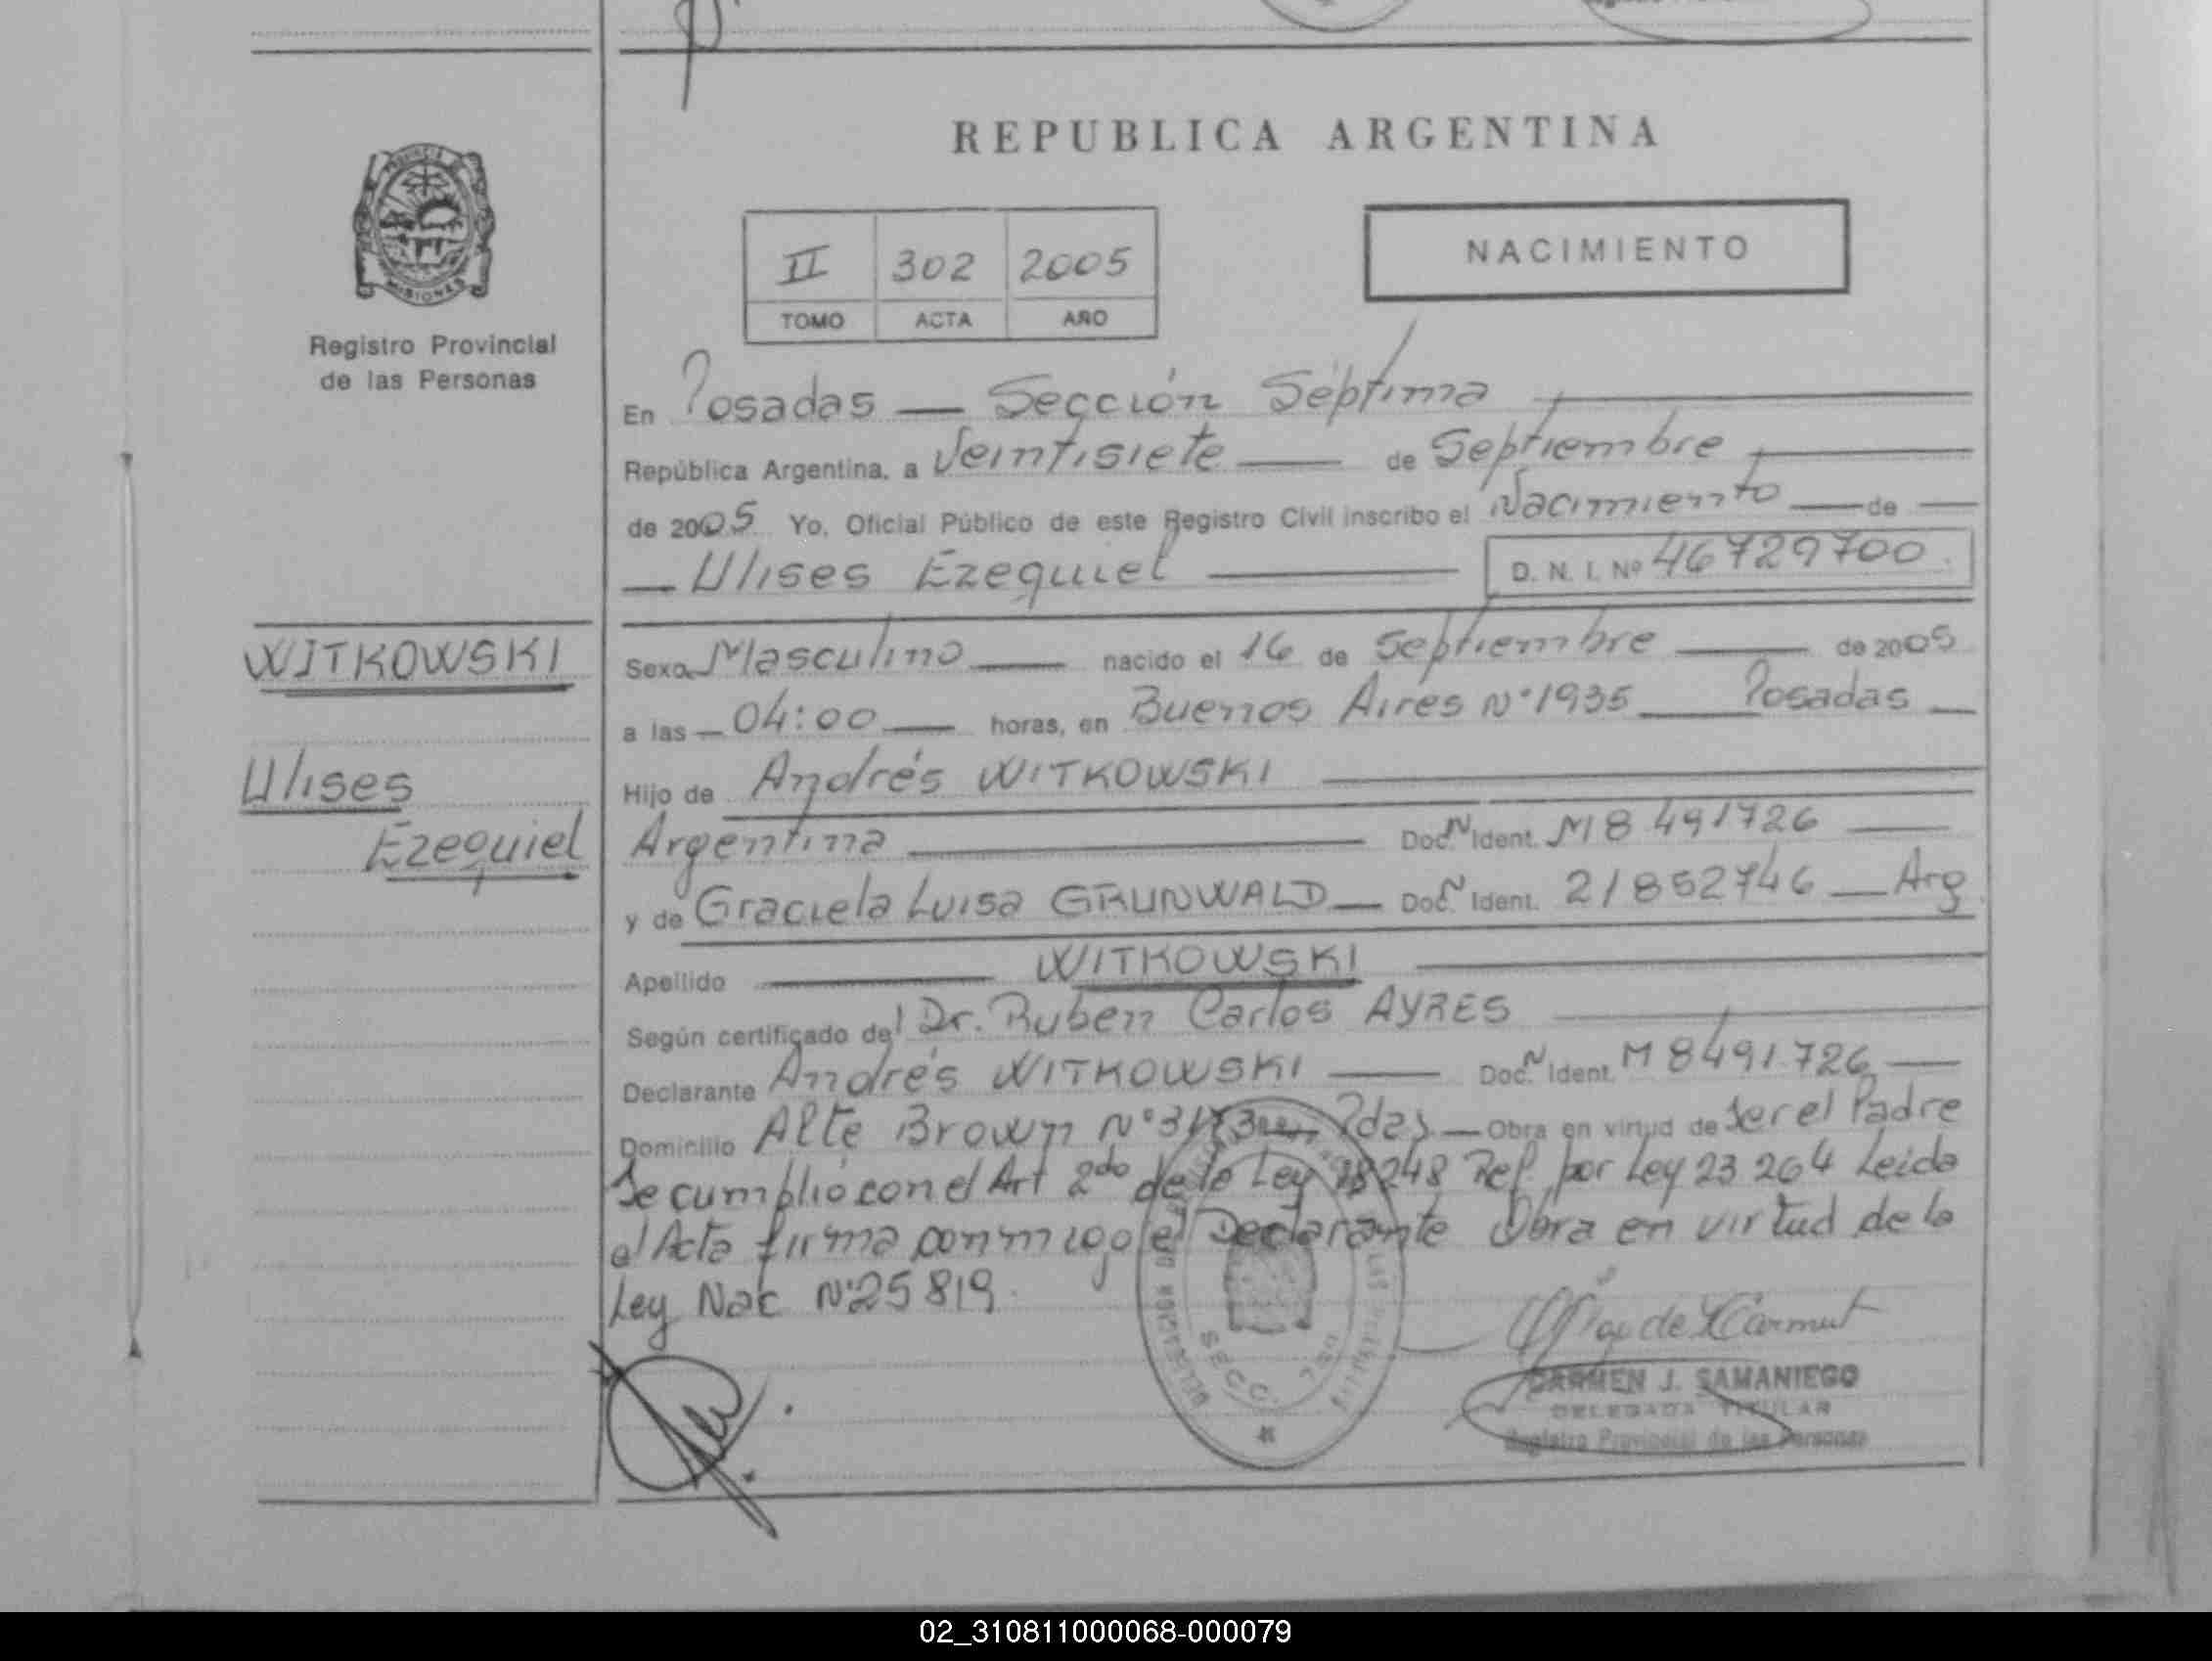 REPUBLICA ARGENTINA
PROVINCIA
MISIONES
Registro Provincial
de las Personas
II 302 2005
TOMO ACTA AÑO
NACIMIENTO
En Posadas — Sección Séptima
República Argentina, a Veintisiete — de Septiembre
de 2005 Yo, Oficial Público de este Registro Civil inscribo el Nacimiento — de —
— Ulises Ezequiel — D. N. I. Nº 46729700.
WITKOWSKI
Ulises
Ezequiel
Sexo Masculino — nacido el 16 de Septiembre — de 2005
a las — 04:00 — horas, en Buenos Aires Nº 1935 — Posadas —
Hijo de Andrés WITKOWSKI —
Argentina — Doc. N Ident. M 8 491726 —
y de Graciela Luisa GRUNWALD — Doc. N Ident. 21852746 — Arg
Apellido — WITKOWSKI —
Según certificado del Dr. Ruben Carlos AYRES —
Declarante Andrés WITKOWSKI — Doc. N Ident. M 8491726 —
Domicilio Alte Brown Nº Pdas — Obra en virtud de Ser el Padre
Se cumplió con el Art 2do de la Ley 18248 Ref por Ley 23 264 Leida
el Acta firma conmigo el Declarante Obra en virtud de la
Ley Nac Nº 25819.
SECC.
CARMEN J. SAMANIEGO
DELEGADA TITULAR
Registro Provincial de las Personas
02_310811000068-000079